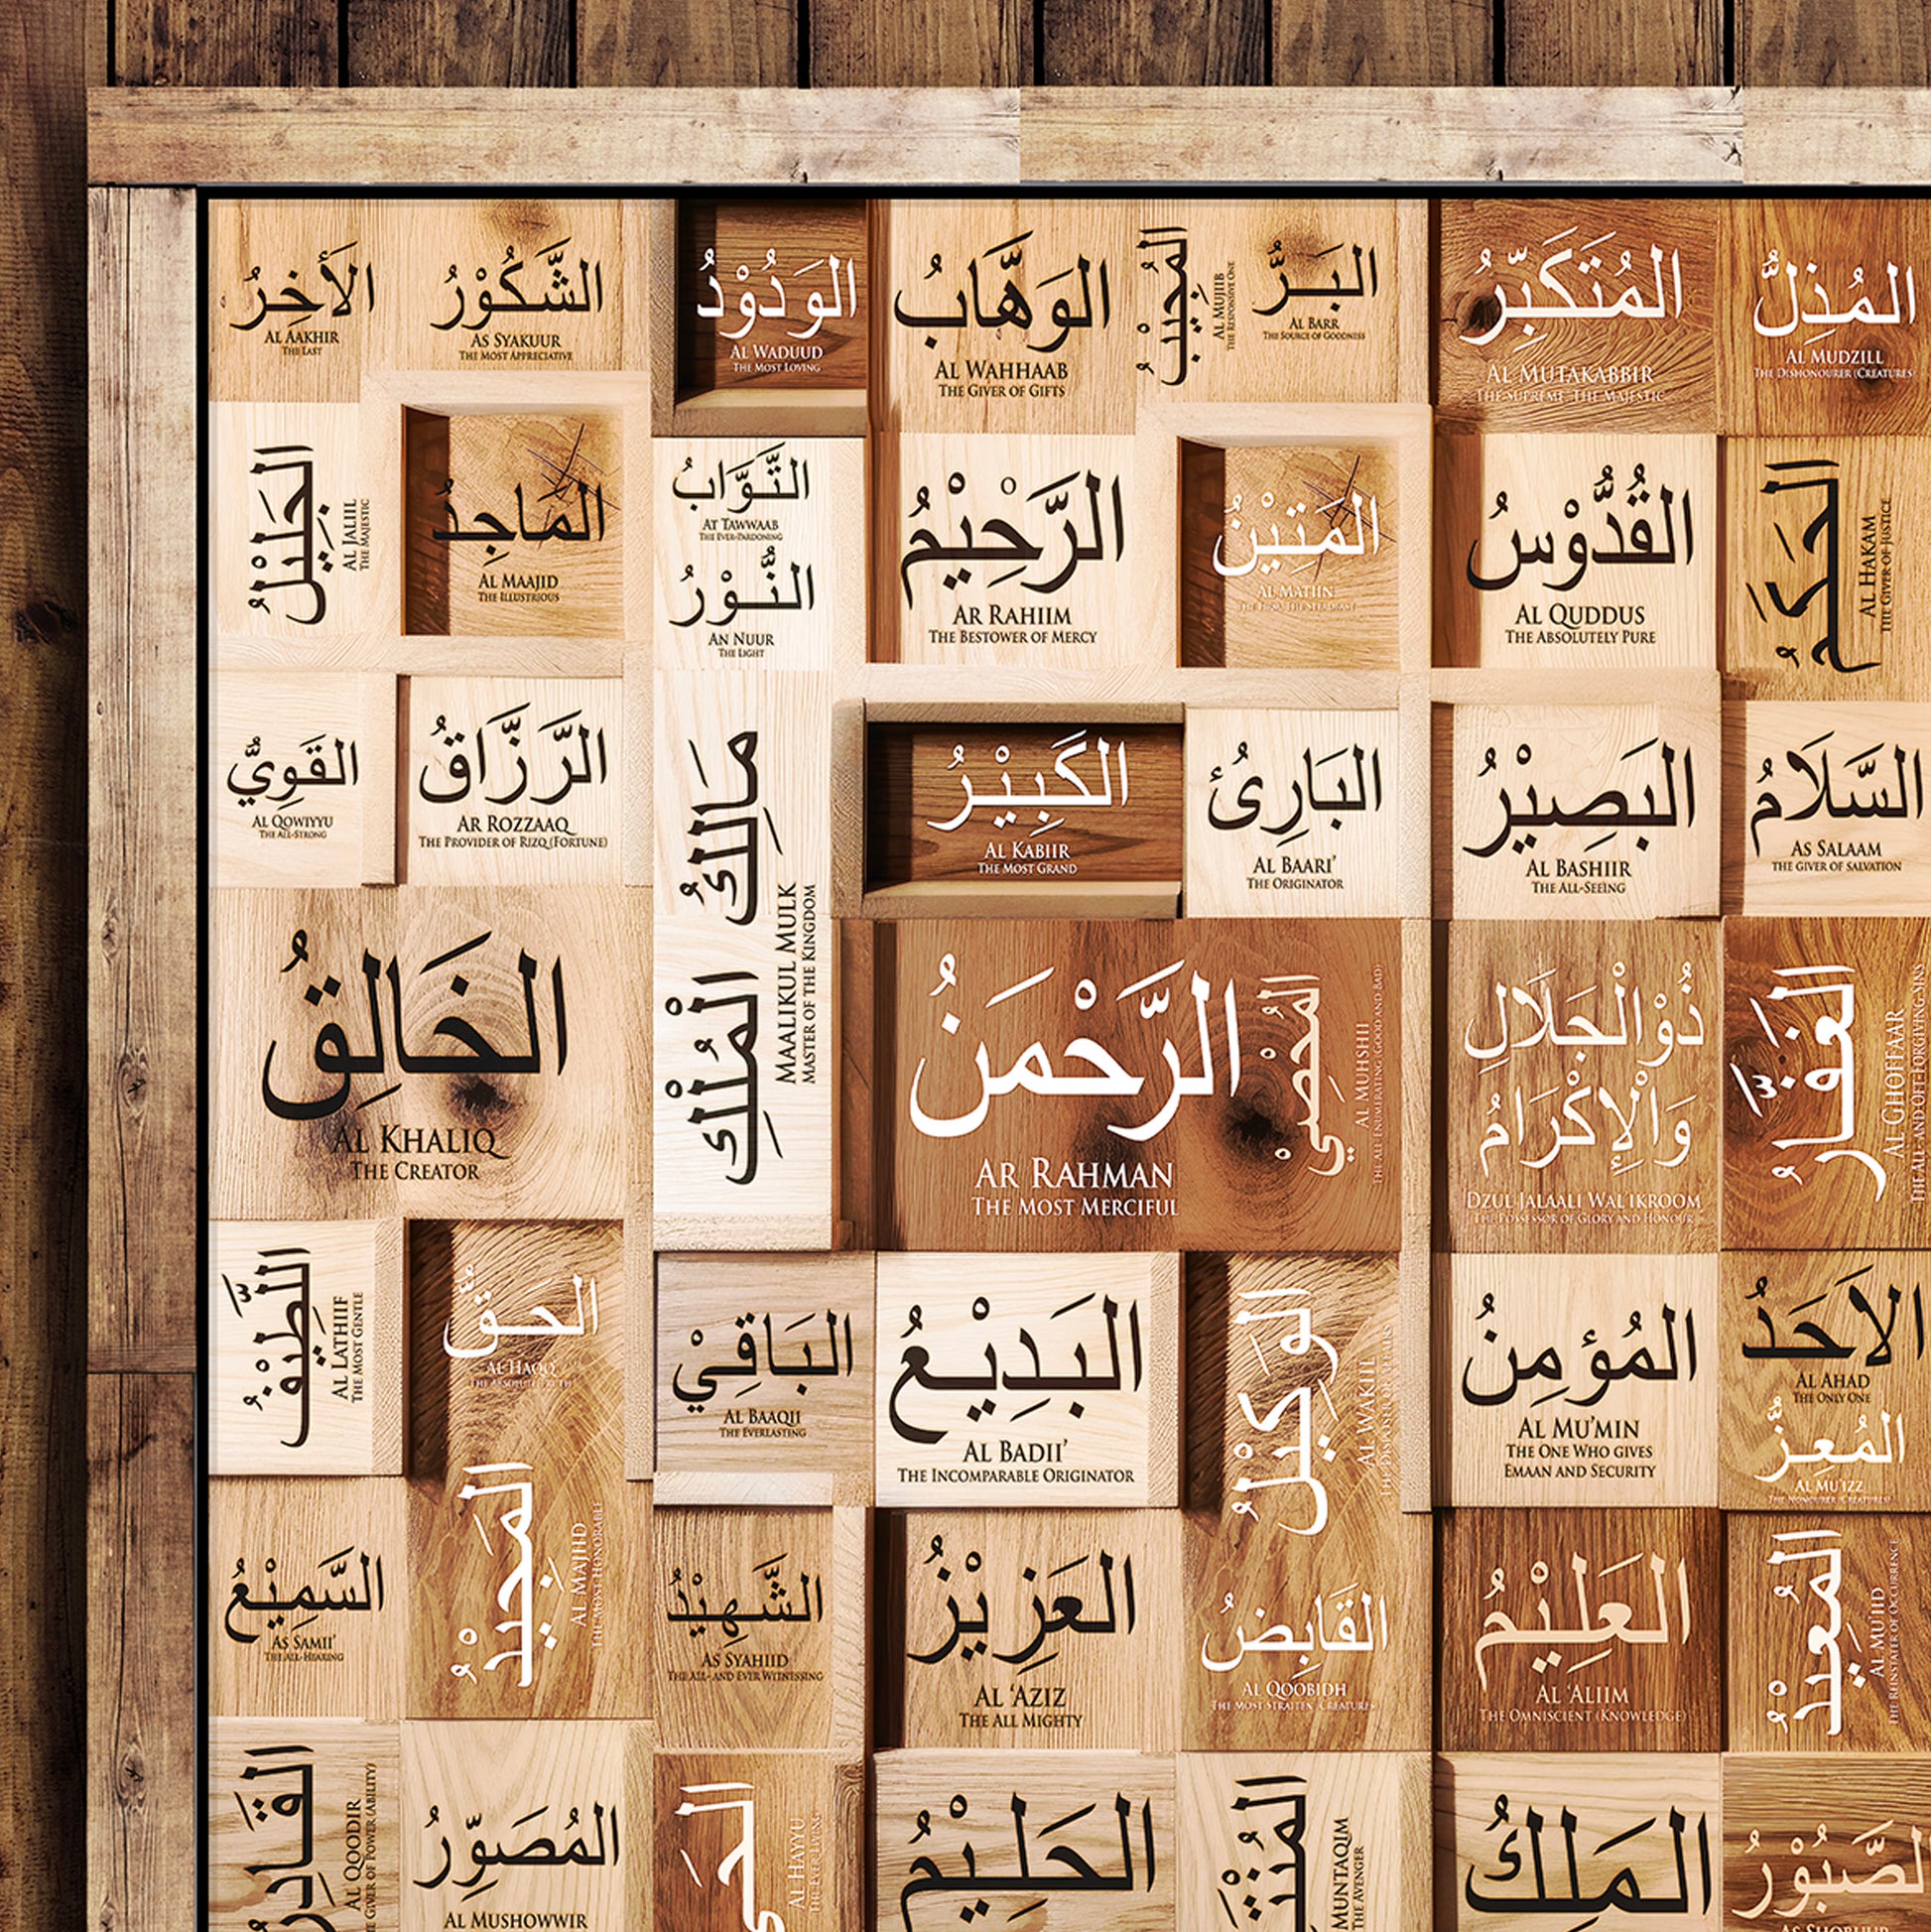 الأَخِرُ
AL AAKHIR
THE LAST
الشَّكُوْرُ
AS SYAKUUR
THE MOST APPRECIATIVE
الوَدُوْدُ
AL WADUUD
THE MOST LOVING
الوَهَّابُ
AL WAHHAAB
THE GIVER OF GIFTS
المُجِيْبُ
AL MUJIIB
THE RESPONSIVE ONE
البَـرُّ
AL BARR
THE SOURCE OF GOODNESS
المُتَكَبِّرُ
AL MUTAKABBIR
THE SUPREME, THE MAJESTIC
المُـذِلُّ
AL MUDZILL
THE DISHONOURER (CREATURES)
الجَلِيْلُ
AL JALIIL
THE MAJESTIC
المَاجِدُ
AL MAAJID
THE ILLUSTRIOUS
التَّـوَّابُ
AT TAWWAAB
THE EVER-PARDONING
النُّـوْرُ
AN NUUR
THE LIGHT
الرَّحِيْمُ
AR RAHIIM
THE BESTOWER OF MERCY
المَتِيْنُ
AL MATIIN
القُدُّوْسُ
AL QUDDUS
THE ABSOLUTELY PURE
الحَـكَمُ
AL HAKAM
THE GIVER OF JUSTICE
القَوِيُّ
AL QOWIYYU
THE ALL-STRONG
الرَّزَّاقُ
AR ROZZAAQ
THE PROVIDER OF RIZQ (FORTUNE)
مَـالِكُ الْمُلْكِ
MAALIKUL MULK
MASTER OF THE KINGDOM
الكَبِيْـرُ
AL KABIIR
THE MOST GRAND
البَارِئُ
AL BAARI'
THE ORIGINATOR
البَصِيْرُ
AL BASHIIR
THE ALL-SEEING
السَّلَامُ
AS SALAAM
THE GIVER OF SALVATION
الخَالِقُ
AL KHALIQ
THE CREATOR
الرَّحْمَنُ
AR RAHMAN
THE MOST MERCIFUL
المُحْصِيْ
AL MUHSHII
THE ALL-ENUMERATING (GOOD AND BAD)
ذُوْالْجَلَالِ
وَالْإِكْرَامُ
DZUL JALAALI WAL IKROOM
THE POSSESSOR OF GLORY AND HONOUR
الغَفَّـارُ
AL GHOFFAAR
THE ALL AND OFT-FORGIVING SINS
اللَّطِيْفُ
AL LATHIIF
THE MOST GENTLE
الحَـقُّ
AL HAQQ
THE ABSOLUTE TRUTH
البَـاقِيْ
AL BAAQII
THE EVERLASTING
البَـدِيْـعُ
AL BADII'
THE INCOMPARABLE ORIGINATOR
الوَكِيْلُ
AL WAKIIL
المُؤمِنُ
AL MU'MIN
THE ONE WHO GIVES
EMAAN AND SECURITY
الاَحَدُ
AL AHAD
THE ONLY ONE
المُعِـزُّ
AL MU'IZZ
THE HONOURER (CREATURES)
السَّمِيْعُ
AS SAMII'
THE ALL-HEARING
المَجِيْدُ
AL MAJIID
THE MOST HONORABLE
الشَّهِيْدُ
AS SYAHIID
THE ALL- AND EVER WITNESSING
العَزِيْزُ
AL 'AZIZ
THE ALL MIGHTY
القَابِضُ
AL QOOBIDH
THE MOST STRAITEN (CREATURES)
العَلِيْمُ
AL 'ALIIM
THE OMNISCIENT (KNOWLEDGE)
المُعِيْدُ
AL MU'IID
THE REINSTATER OF OCURRENCE
القَـادِرُ
AL QOODIR
GIVER OF POWER (ABILITY)
المُصَوِّرُ
AL MUSHOWWIR
AL HAYYU
THE EVER LIVING
الحَلِـيْمُ
MUNTAQIM
THE AVENGER
المَلِكُ